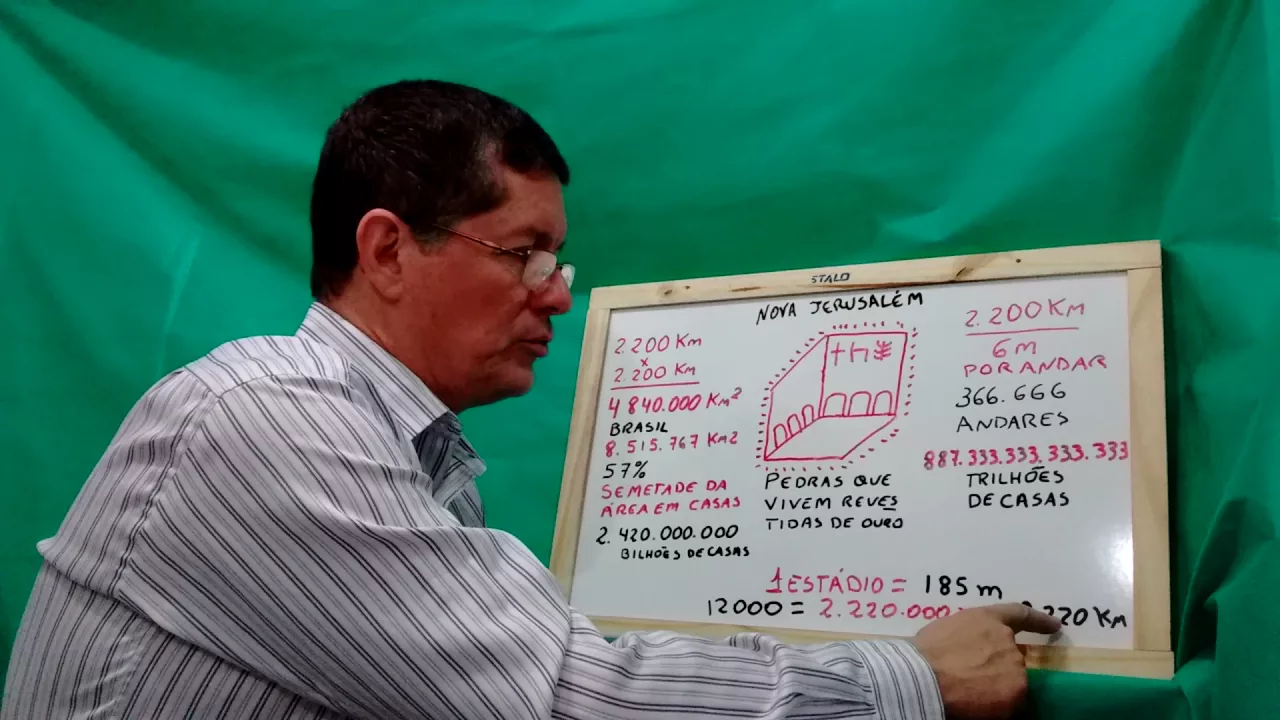 STALO
NOVA JERUSALÉM
2.200 Km
x
2.200 Km
4 840.000 Km²
BRASIL
8.515.767 Km2
57%
SEMETADE DA
ÁREA EM CASAS
2.420.000.000
BILHÕES DE CASAS
PEDRAS QUE
VIVEM REVES
TIDAS DE OURO
2.200 Km
6 M
POR ANDAR
366.666
ANDARES
887.333.333.333.333
TRILHÕES
DE CASAS
1 ESTÁDIO = 185 m
12000 = 2.220.000 220 Km